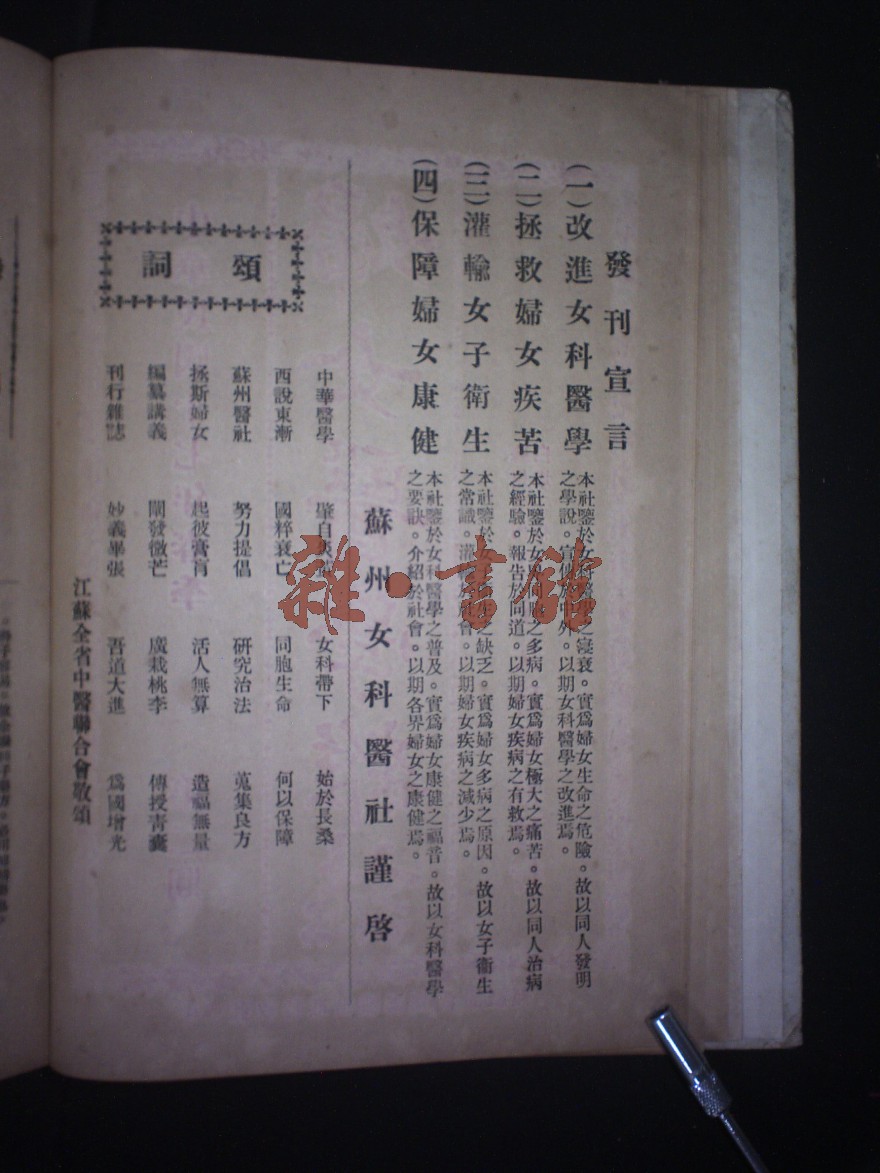 發刊宣言
(一)改進女科醫學 本社鑒於女科醫學之寖衰。實爲婦女生命之危險。故以同人發明
之學說。宣傳於中外。以期女科醫學之改進焉。
(二)拯救婦女疾苦 本社鑒於女界同胞之多病。實爲婦女極大之痛苦。故以同人治病
之經驗。報告於同道。以期婦女疾病之有救焉。
(三)灌輸女子衛生 本社鑒於女子衛生之缺乏。實爲婦女多病之原因。故以女子衛生
之常識。灌輸於社會。以期婦女疾病之減少焉。
(四)保障婦女康健 本社鑒於女科醫學之普及。實爲婦女康健之福音。故以女科醫學
之要訣。介紹於社會。以期各界婦女之康健焉。
蘇州女科醫社謹啓
頌詞
中華醫學 肇自炎黃 女科帶下 始於長桑
西說東漸 國粹衰亡 同胞生命 何以保障
蘇州醫社 努力提倡 研究治法 蒐集良方
拯斯婦女 起彼膏肓 活人無算 造福無量
編纂講義 闡發微芒 廣栽桃李 傳授青囊
刊行雜誌 妙義畢張 吾道大進 爲國增光
江蘇全省中醫聯合會敬頌
雜·書館